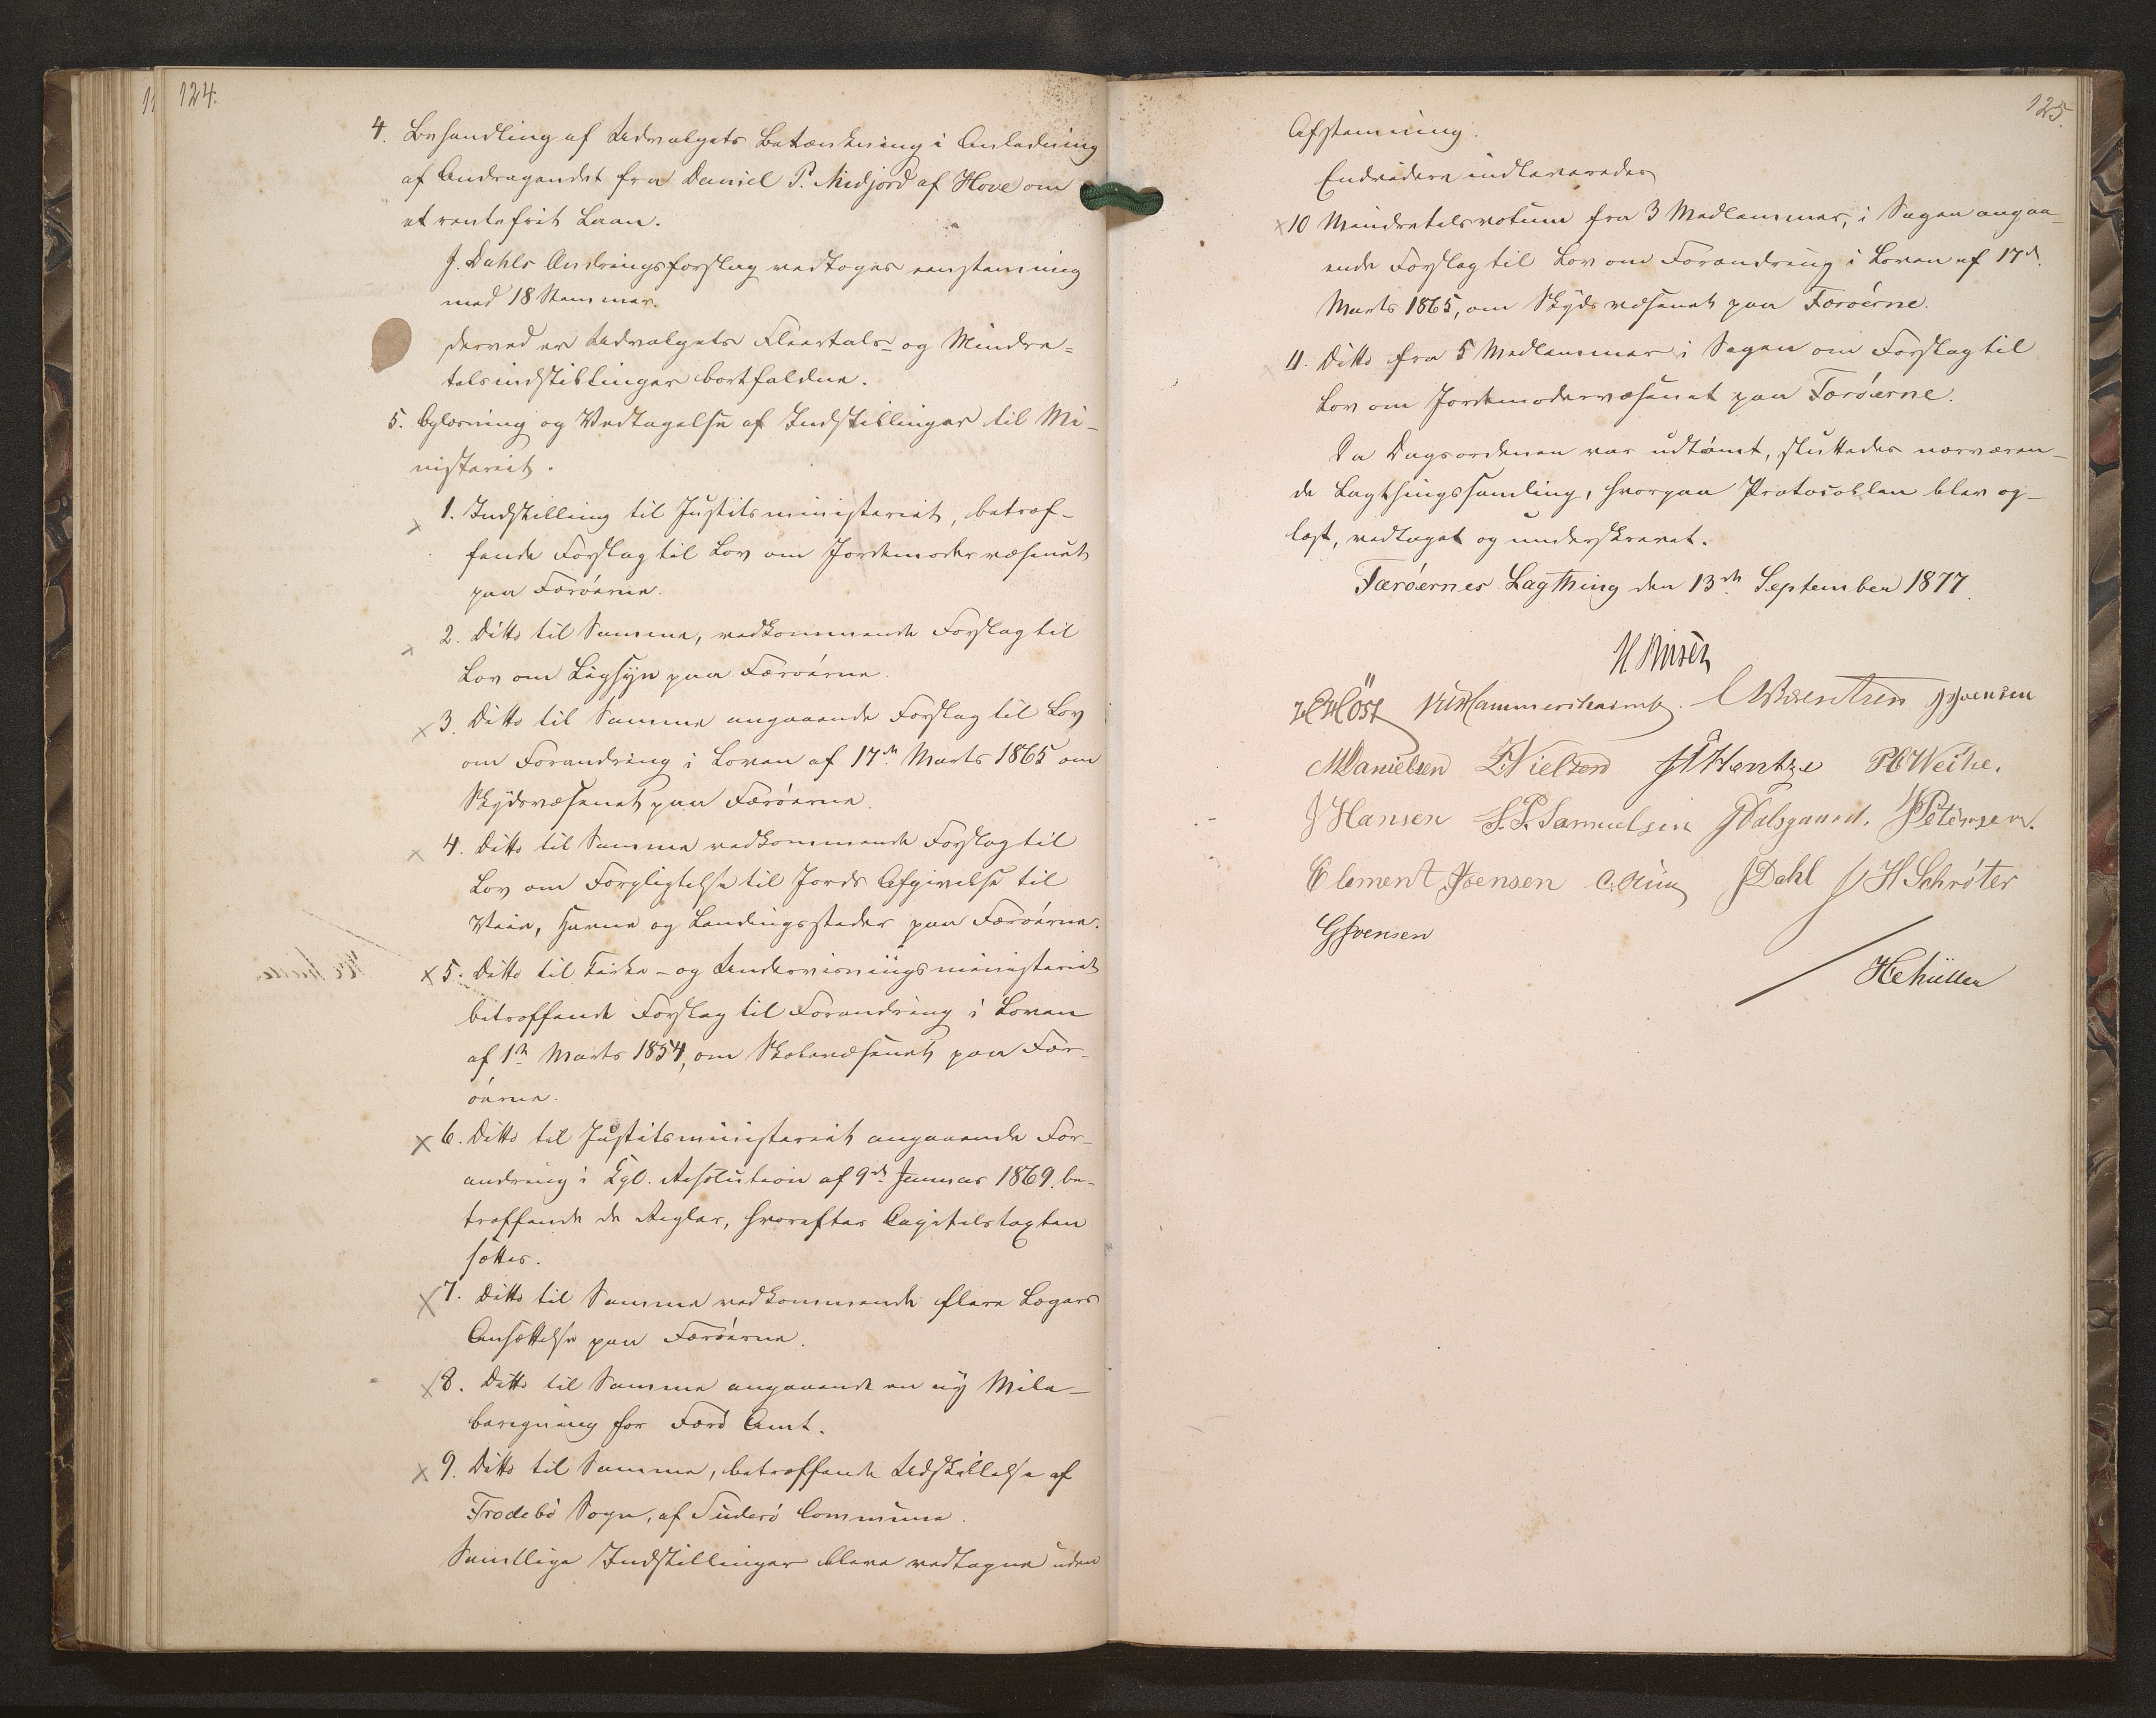 124.
4. Behandling af Udvalgets Betænkning i Anledning
af Andragendet fra Daniel P. Nidjord af Hove om
et rentefrit Laan.
J. Dahls Ændringsforslag vedtoges eenstemmig
med 18 Stemmer.
derved er Udvalgets Fleertals- og Mindre=
talsindstillinger bortfaldne.
5. Oplæsning og Vedtagelse af Indstillinger til Mi-
nisteriet.
1. Indstilling til Justitsministeriet, betræf-
fende Forslag til Lov om Jordemodervæsenet
paa Færøerne.
2. Ditto til Samme, vedkommende Forslag til
Lov om Ligsyn paa Færøerne.
3. Ditto til Samme angaaende Forslag til Lov
om Forandring i Loven af 17de Marts 1865 om
Skydsvæsenet paa Færøerne.
4. Ditto til Samme vedkommende Forslag til
Lov om Forpligtelse til Jords Afgivelse til
Veie, Havne og Landingssteder paa Færøerne.
5. Ditto til Kirke- og Underviisningsministeriet
betræffende Forslag til Forandring i Loven
af 1ste Marts 1854, om Skolevæsenet paa Fær-
øerne.
6. Ditto til Justitsministeriet angaaende For-
andring i Kgl. Resolution af 9de Januar 1869. be-
træffende de Regler, hvorefter Capitelstaxten
sættes.
7. Ditto til Samme vedkommende flere Lægers
Ansættelse paa Færøerne.
8. Ditto til Samme angaaende en ny Mile-
beregning for Færø Amt.
9. Ditto til Samme, betræffende Udskillelse af
Frodebø Sogn, af Suderø Commune.
Samtlige Indstillinger bleve vedtagne uden
125.
Afstemning.
Endvidere indleveredes
10 Mindretalsvotum fra 3 Medlemmer, i Sagen angaa-
ende Forslag til Lov om Forandring i Loven af 17de
Marts 1865, om Skydsvæsenet paa Færøerne.
11. Ditto fra 5 Medlemmer i Sagen om Forslag til
Lov om Jordemodervæsenet paa Færøerne.
Da Dagsordenen var udtømt, sluttedes nærværen-
de Lagthingssamling, hvorpaa Protocollen blev op-
læst, vedtaget og underskrevet.
Færøernes Lagthing den 13de September 1877.
H. Finsen
Høst VUHammershaimb. CBærentsen JJoensen
MDanielsen ZNielsen Hentze Weihe.
JHansen S.P.Samuelsen JDalsgaard. JPetersen.
Clement Joensen JDahl H Schrøter
GJoensen
HeMüller